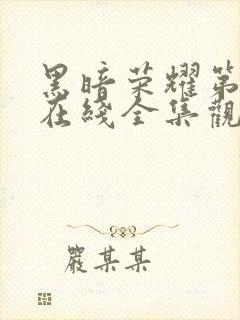 黑暗荣耀第
在綫全集觀
嚴某某